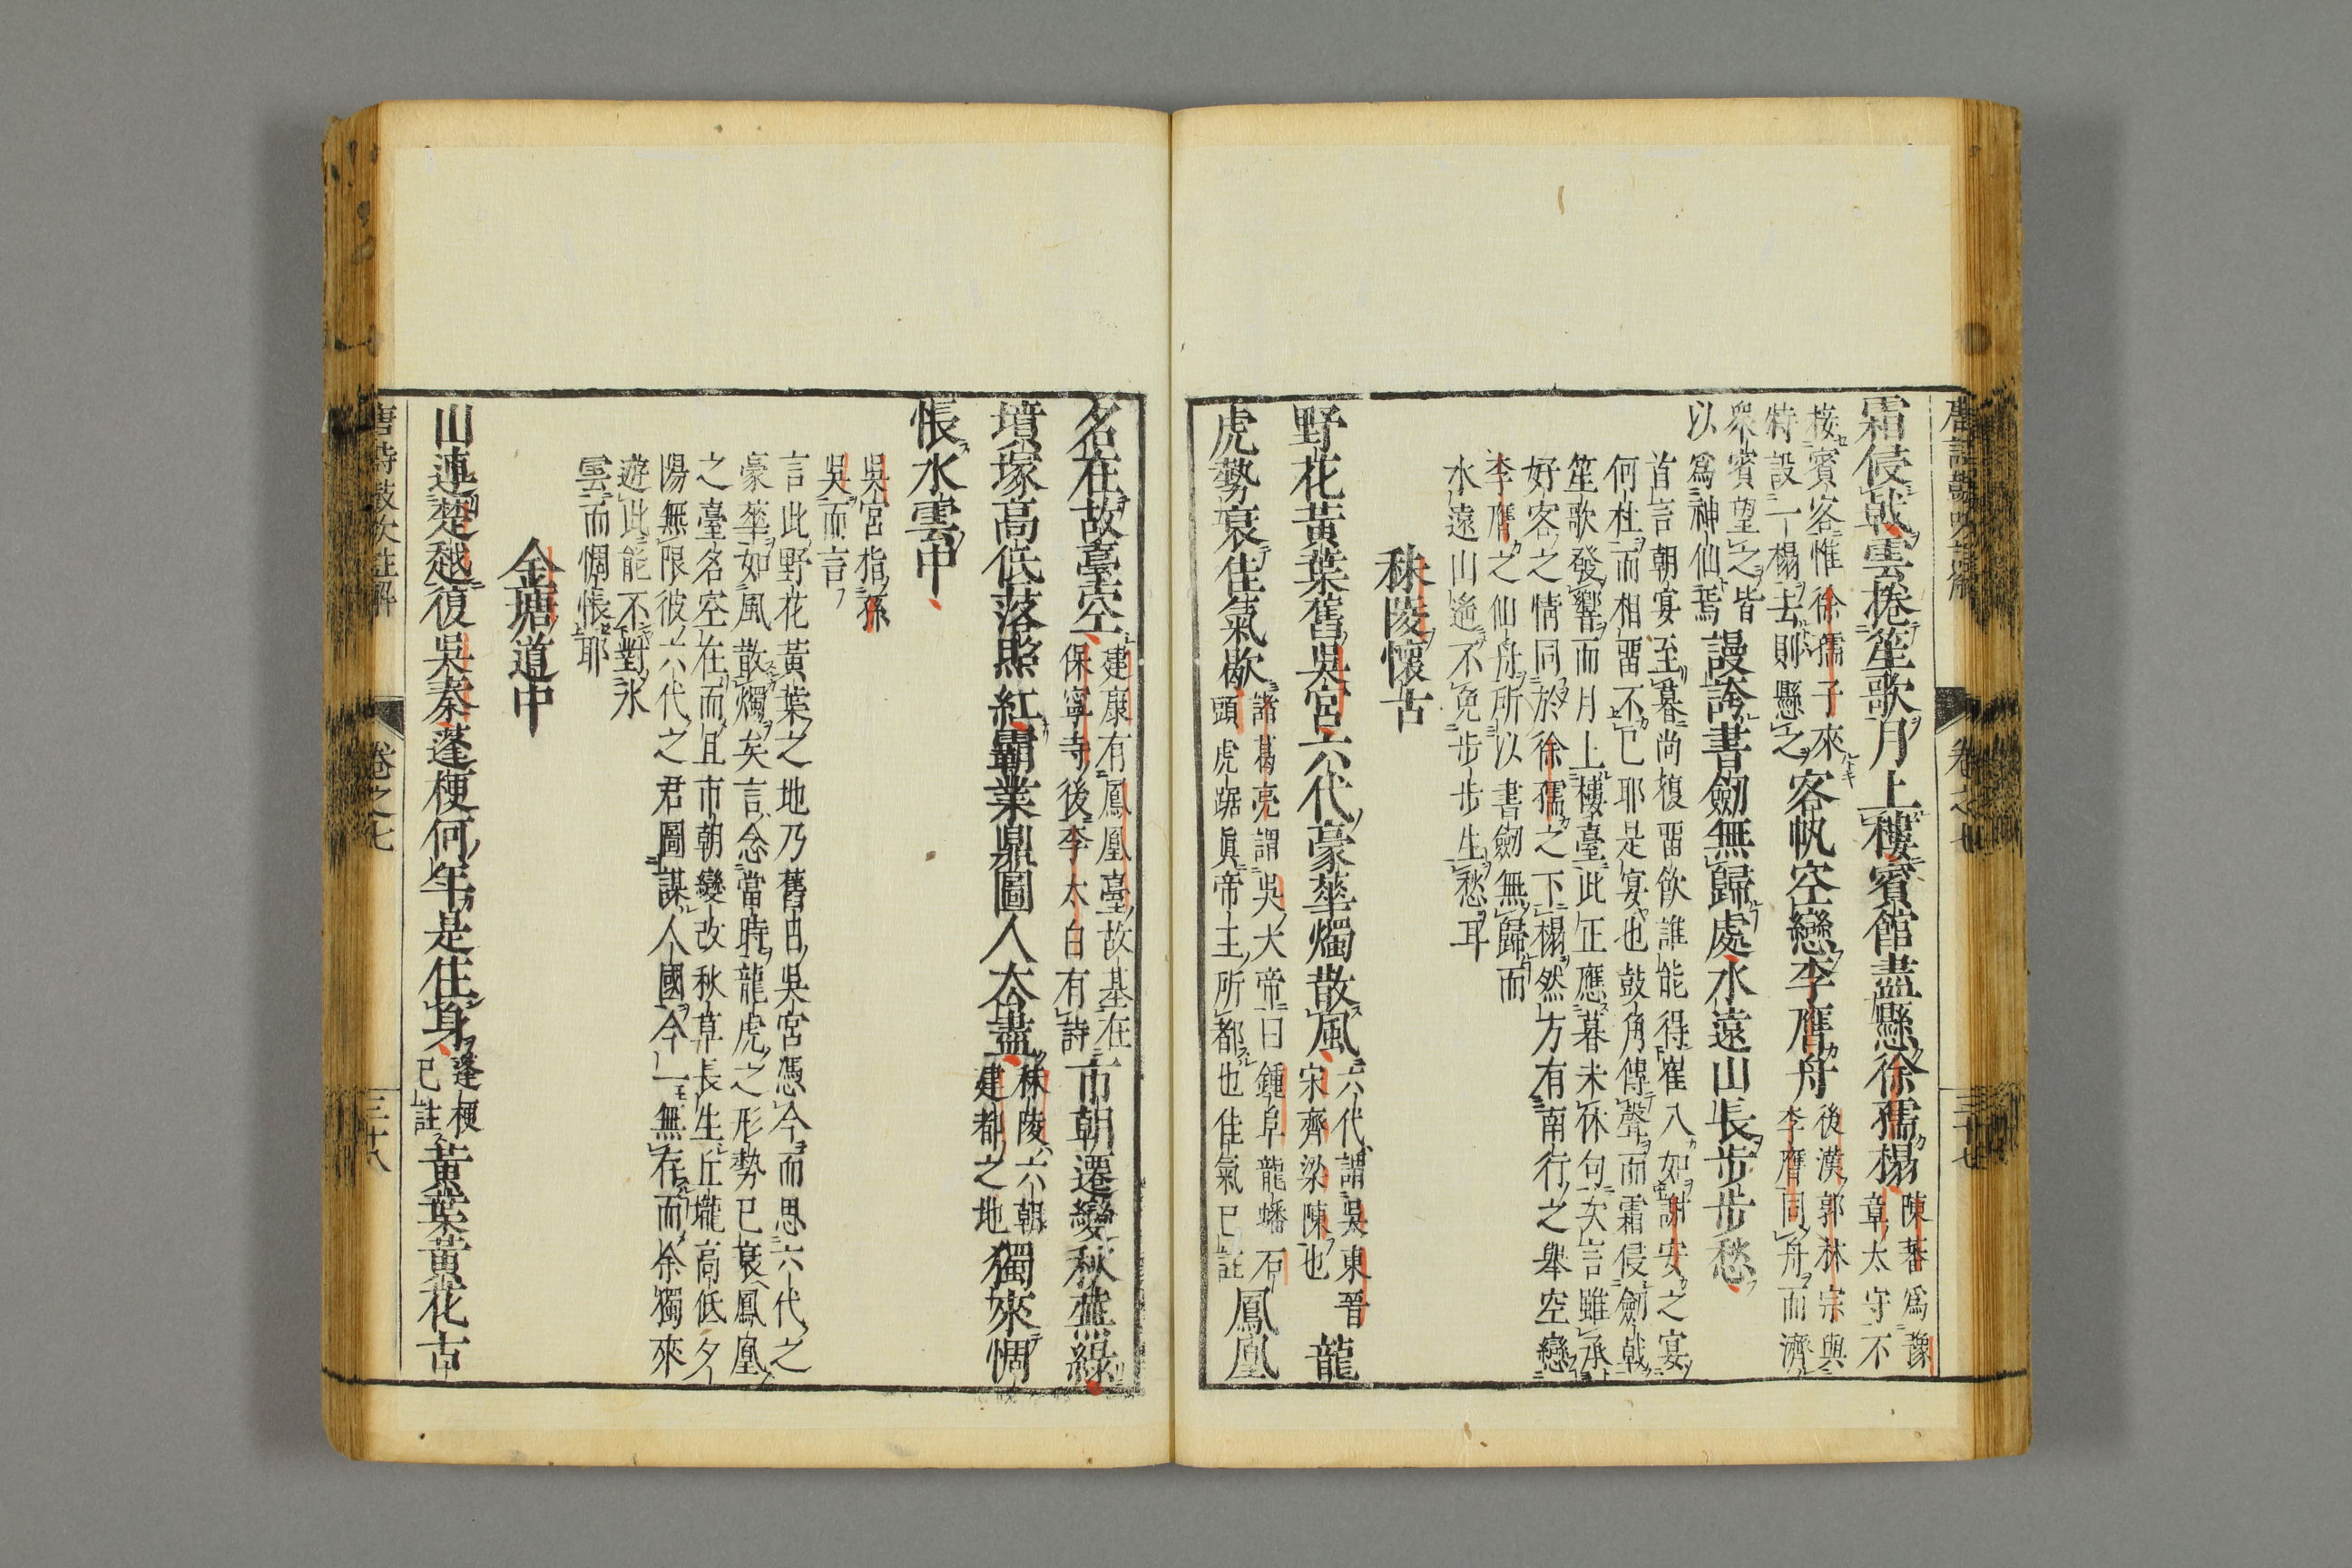 霜侵戟雲捲笙歌月上樓賓館盡懸徐孺榻陳蕃爲豫
章太守不
接賓客惟徐孺子來
特設一榻去則懸之客帆空戀李膺舟後漢郭林宗與
李膺同舟而濟
衆賓望之皆
以爲神仙焉謾誇書劒無歸處水遠山長步步愁
首言朝宴至暮尚復畱飲誰能得崔八如謝安之宴
何杜而相畱不已耶是宴也鼓角傳聲而霜侵劒戟
笙歌發響而月上樓臺此正應暮未休句次言雖承
好客之情同於徐孺之下榻然方有南行之舉空戀
李膺之仙舟所以書劒無歸而
水遠山遙不免步步生愁耳
秣陵懷古
野花黃葉舊吳宮六代豪華燭散風六代謂吳東晉
宋齊梁陳也龍
虎勢衰佳氣歇諸葛亮謂吳大帝曰鍾阜龍蟠石
頭虎踞眞帝王所都也佳氣已註鳳凰
名在故臺空建康有鳳凰臺故基在
保寧寺後李太白有詩市朝遷變秋蕪綠
墳塚高低落照紅霸業鼎圖人去盡秣陵六朝
建都之地獨來惆
悵水雲中
吳宮指孫
吳而言
言此野花黃葉之地乃舊日吳宮憑今而思六代之
豪華如風散燭矣言念當時龍虎之形勢已衰鳳凰
之臺名空在而且市朝變改秋草長生丘壠高低夕
陽無限彼六代之君圖謀人國今一無存而余獨來
遊此能不對水
雲而惆悵耶
金塘道中
山連楚越復吳秦蓬梗何年是住身蓬梗
已註黃葉黃花古
唐詩鼓吹註解
卷之七
三十八
卷之七
三十七